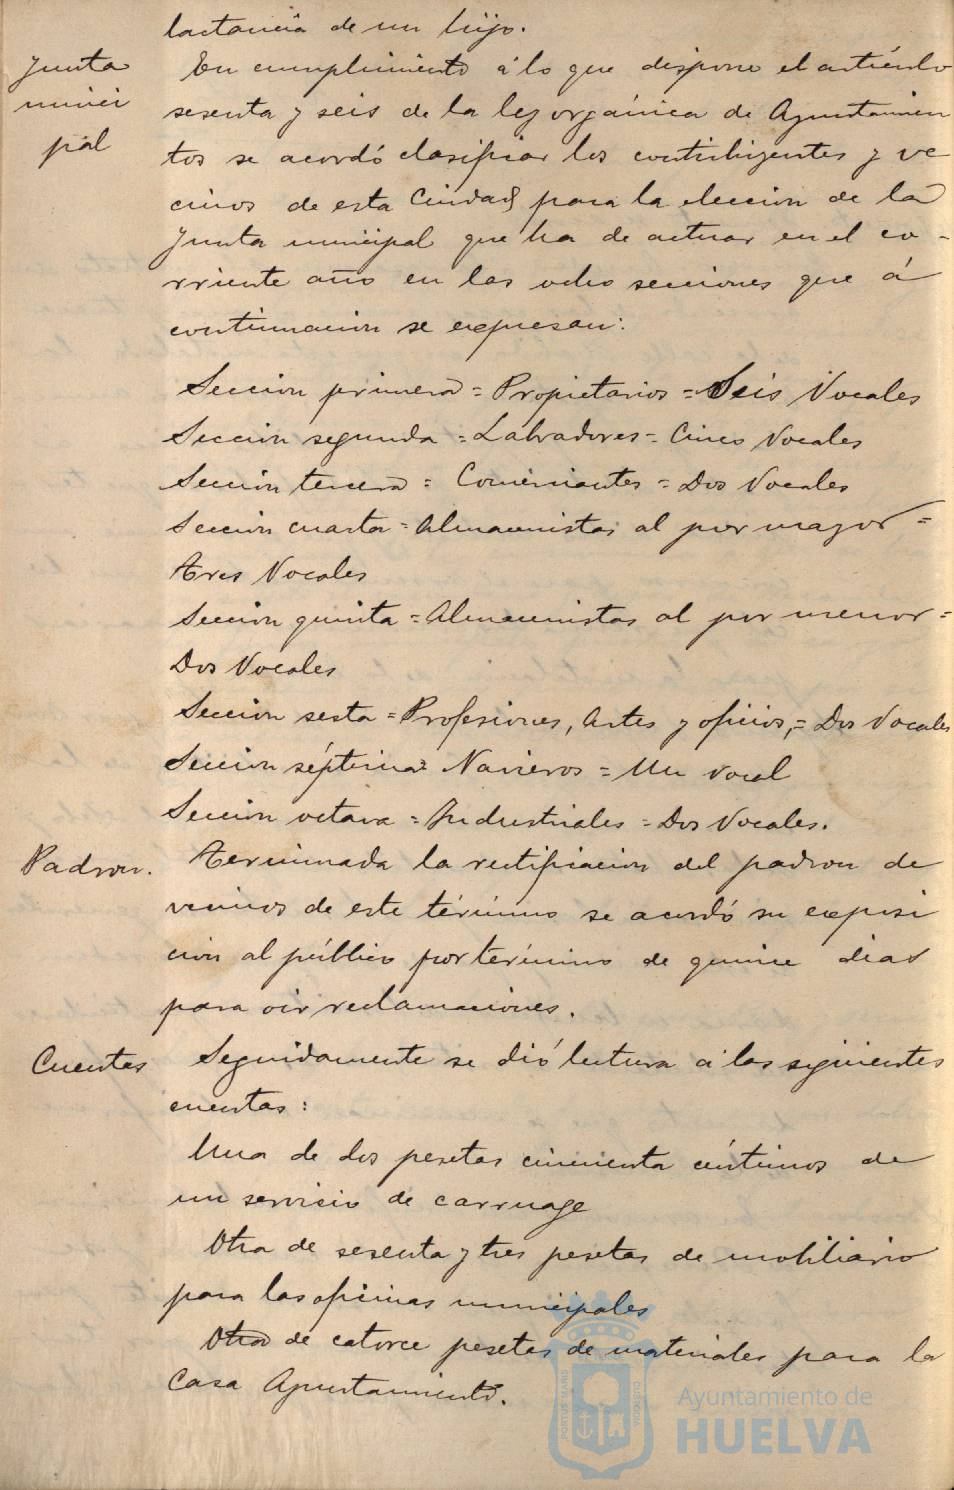 lactancia de un hijo.
Junta
munici
pal
En cumplimiento á lo que dispone el artículo
sesenta y seis de la ley orgánica de Ayuntamien
tos se acordó clasificar los contribuyentes y ve
cinos de esta Ciudad para la elección de la
Junta municipal que ha de actuar en el co-
rriente año en las ocho secciones que á
continuacion se expresan:
Seccion primera = Propietarios = Seis Vocales
Seccion segunda = Labradores = Cinco Vocales
Seccion tercera = Comerciantes = Dos Vocales
Seccion cuarta = Almacenistas al por mayor =
Tres Vocales
Seccion quinta = Almacenistas al por menor =
Dos Vocales
Seccion sesta = Profesiones, Artes y oficios, = Dos Vocales
Seccion séptima = Navieros = Un vocal
Seccion octava = Industriales = Dos Vocales.
Padron.
Terminada la rectificacion del padron de
vecinos de este término se acordó su exposi
cion al público por término de quince dias
para oir reclamaciones.
Cuentas
Seguidamente se dió lectura á las siguientes
cuentas:
Una de dos pesetas cincuenta céntimos de
un servicio de carruage
Otra de sesenta y tres pesetas de mobiliario
para las oficinas municipales
Otra de catorce pesetas de materiales para la
Casa Ayuntamiento.
PORTUS MARIS
ET TERRAE CUSTODIA
Ayuntamiento de
HUELVA